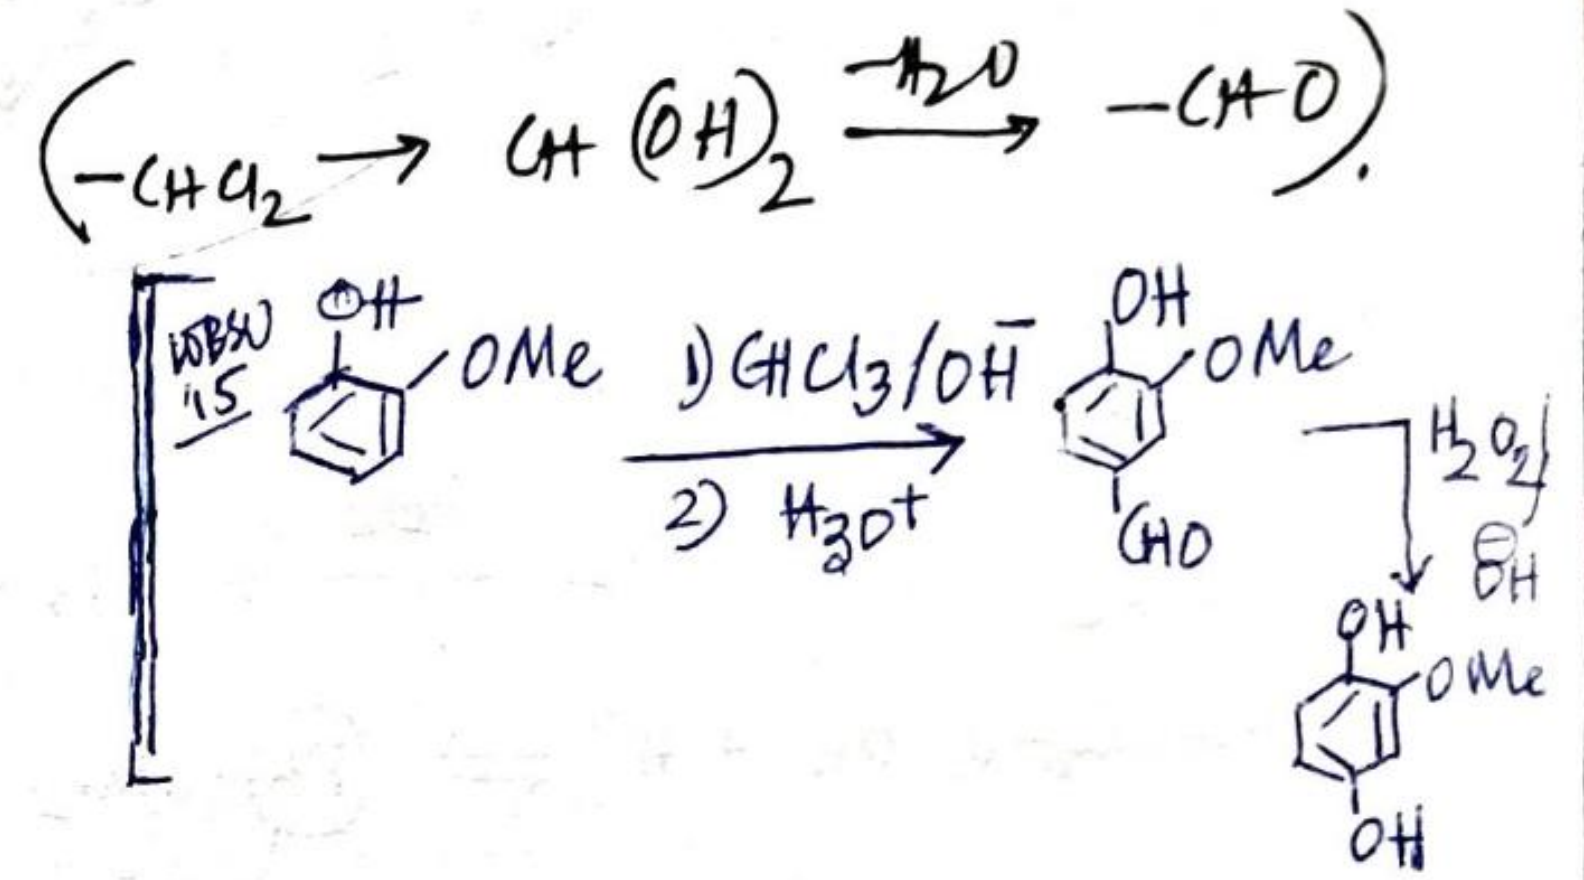 (-CHCl2 → CH(OH)2 -H2O → -CHO).
WBSU '15
OH
OMe
1) CHCl3/OH-
2) H3O+
OH
OMe
CHO
H2O2/
⊖
OH
OH
OMe
OH